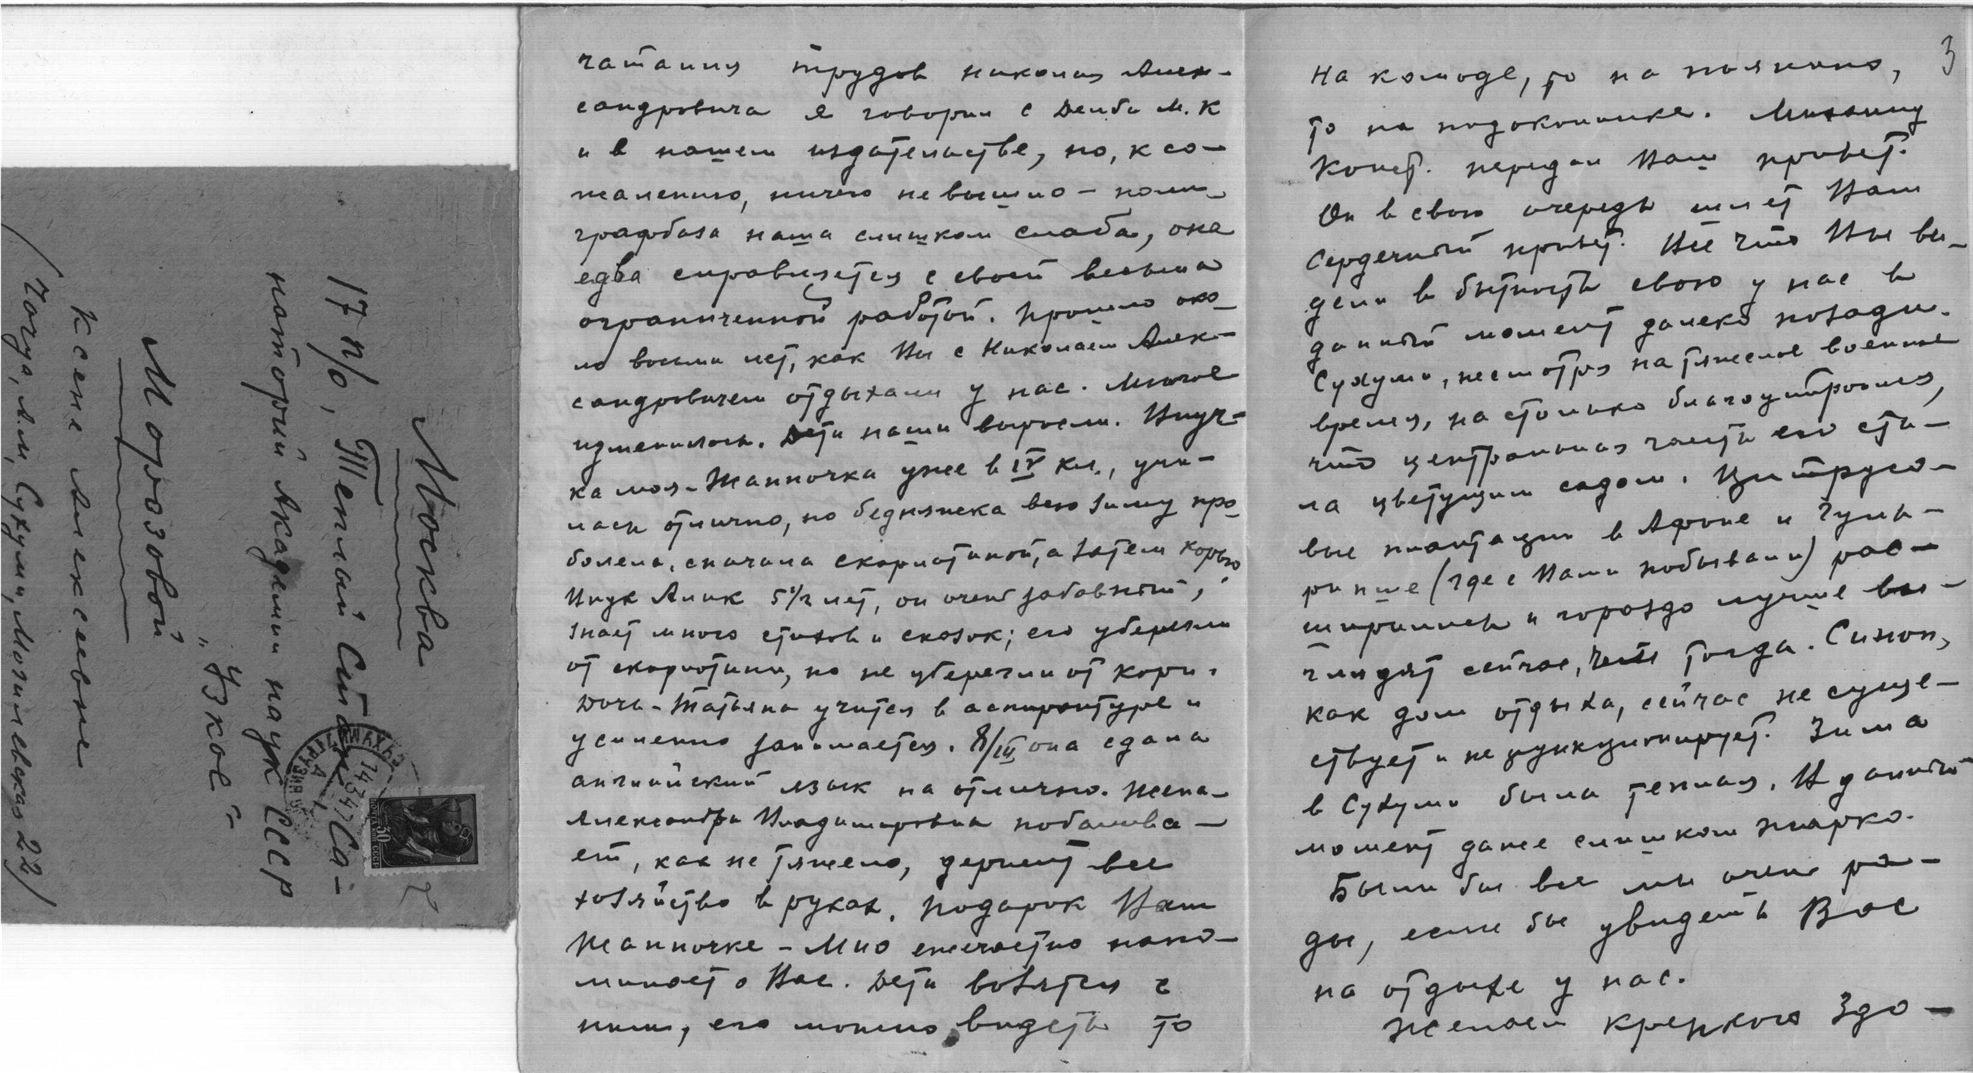 Москва
17 п/о, Теплый Стан, Са-
наторий Академии наук СССР
„Узкое"
Морозовой
Ксене Алексеевне
/Точуа, А.М, Сухуми, Могилевская 22/
30
ПОЧТА СССР
чатания трудов Николая Алек-
сандровича я говорил с Делба М.К
и в нашем издательстве, но, к со-
жалению, ничего не вышло – поли-
графбаза наша слишком слаба, она
едва справляется с своей весьма
ограниченной работой. Прошло око-
ло восьми лет, как Вы с Николаем Алек-
сандровичем отдыхали у нас. Многое
изменилось. Дети наши выросли. Внуч-
ка моя – Жанночка уже в IV кл., учи-
лась отлично, но бедняжка всю зиму про-
болела, сначала скарлатиной, а затем корью,
Внук Алик 5½ лет, он очень забавный,
знает много стихов и сказок; его уберегли
от скарлатины, но не уберегли от кори.
Дочь – Татьяна учится в аспирантуре и
усиленно занимается. 8/IV она сдала
английский язык на отлично. Жена –
Александра Владимировна побалива-
ет, как не тяжело, держит все
хозяйство в руках. Подарок Ваш
Жанночке – Мио ежечасно напо-
минает о Вас. Дети возятся с
ним, его можно видеть то
3
на комоде, то на пианино,
то на подоконнике. Михаилу
Конст. передал Ваш привет.
Он в свою очередь шлет Вам
сердечный привет. Все что Вы ви-
дели в бытность свою у нас в
данный момент далеко позади.
Сухуми, несмотря на тяжелое военное
время, на столько благоустроился,
что центральная часть его ста-
ла цветущим садом. Цитрусо-
вые плантации в Афоне и Гуль-
рипше (где с Вами побывали) рас-
ширились и гораздо лучше вы-
глядят сейчас, чем тогда. Синоп,
как дом отдыха, сейчас не суще-
ствует и не функционирует. Зима
в Сухуми была теплая. В данный
момент даже слишком жарко.
Были бы все мы очень ра-
ды, если бы увидеть Вас
на отдыхе у нас.
Желаем крепкого здо-